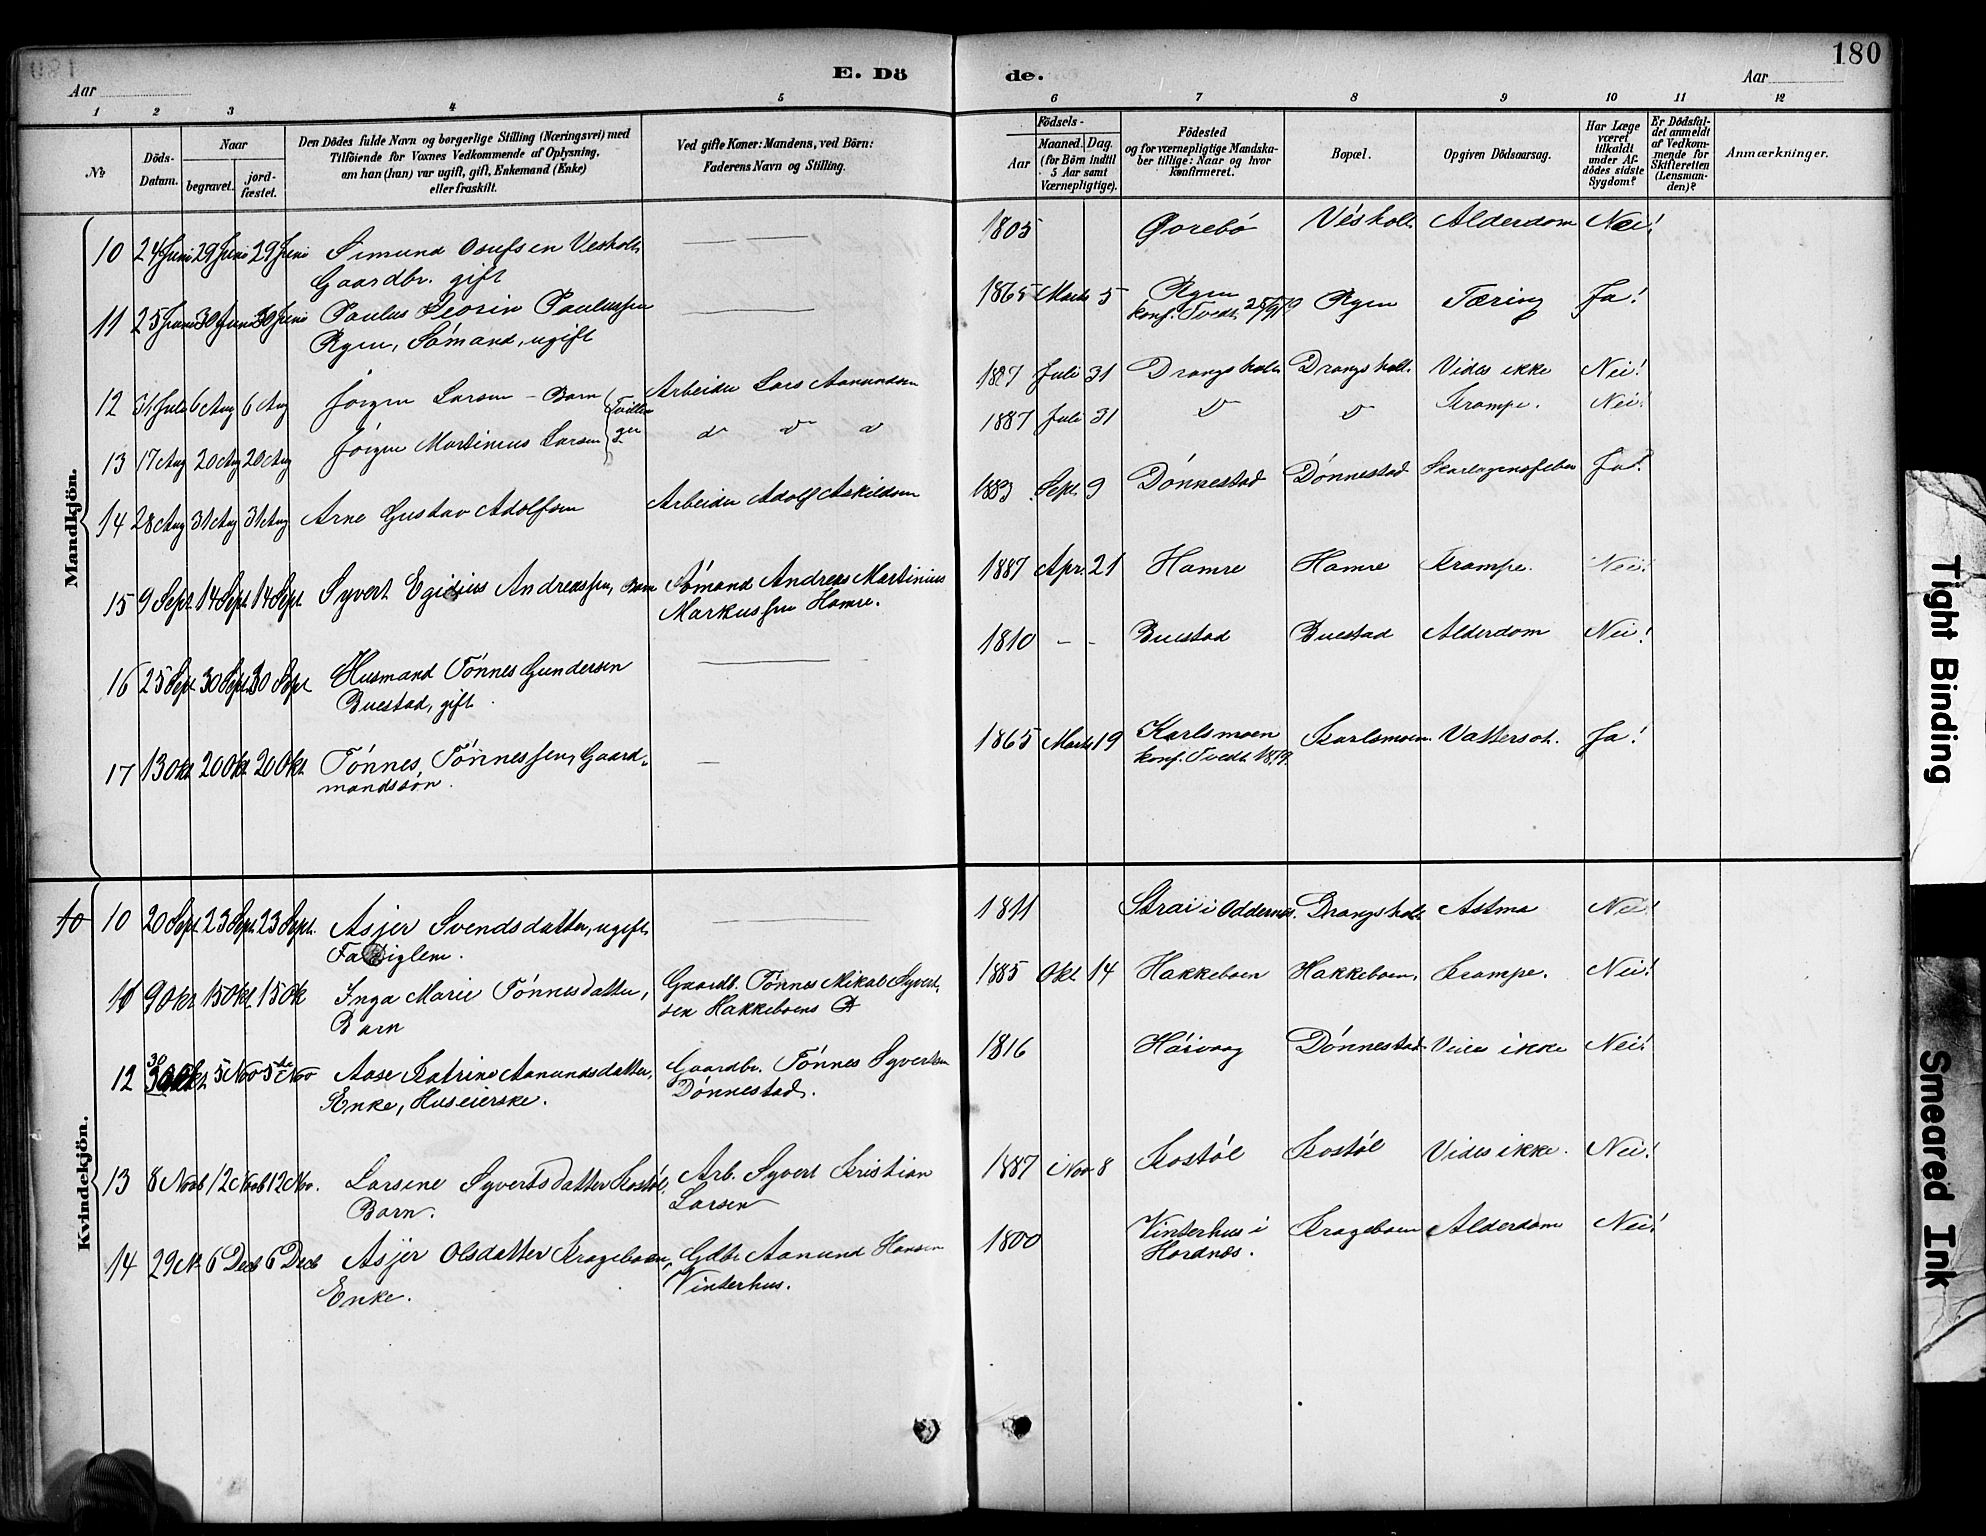 180
E. Dö de.
Aar Aar
1 2 3 4 5 6 7 8 9 10 11 12
№
Döds-Datum.
Naar
begravet.
jordfæstet.
Den Dödes fulde Navn og borgerlige Stilling (Næringsvei) med
Tilföiende for Voxnes Vedkommende af Oplysning,
om han (hun) var ugift, gift, Enkemand (Enke)
eller fraskilt.
Ved gifte Koner: Mandens, ved Börn:
Faderens Navn og Stilling.
Födsels-
Aar
Maaned. Dag.
(for Börn indtil
5 Aar samt
Værnepligtige).
Födested
og for værnepligtige Mandska-
ber tillige: Naar og hvor
konfirmeret.
Bopæl.
Opgiven Dödsaarsag.
Har Læge
været
tilkaldt
under Af-
dödes sidste
Sygdom?
Er Dödsfal-
det anmeldt
af Vedkom-
mende for
Skifteretten
(Lensman-
den)?
Anmærkninger.
Mandkjön.
10 24 Juni 29 Juni 29 Juni Simund Osufsen Vesholt — — 1805 Øvrebö Vesholt Alderdom Nei!
Gaardbr. gift
11 25 Juni 30 Juni 30 Juni Paulus Paulussen — — 1865 Marts 5 Rgen Rgen Tæring Ja!
Rgen, Sömand, ugift konf. Tvedt
12 31 Juli 6 Aug 6 Aug Jörgen Larsen - Barn Tvillinger Arbeider Lars Aanundsen 1887 Juli 31 Drangsholt Drangsholt. Vides ikke Nei!
13 17 Aug 20 Aug 20 Aug Jörgen Martinius Larsen 1887 Juli 31 Krampe. Nei!
14 28 Aug 31 Aug 31 Aug Arne Gustav Adolfsen Arbeider Adolf Askildsen 1883 Sept 9 Dönnestad Dönnestad Skarlagensfeber Ja!
15 9 Sept 14 Sept 14 Sept Syvert Egidius Andreassen, Barn Sömand Andreas Martinius 1887 Apr. 21 Hamre Hamre Krampe. Nei!
Markussen Hamre.
16 25 Sept 30 Sept 30 Sept Husmand Tönnes Gundersen — 1810 - - Buestad Buestad Alderdom Nei!
Buestad, gift.
17 13 Okt 20 Okt 20 Okt. Tönnes Tönnessen, Gaard- — 1865 Marts 19 Karlsmoen Karlsmoen. Vattersot. Ja!
mandssön. konf. Tvedt 1879.
Kvindekjön.
10 10 20 Sept 23 Sept 23 Sept. Asjer Svendsdatter, ugift — 1811 Strai i Oddernes. Drangsholt Astma Nei!
Fattiglem.
11 9 Okt 15 Okt 15 Ok Inga Marie Tönnesdatter, Gaardb. Tönnes Mikal Syvert- 1885 Okt 14 Hakkeboen Hakkeboen. Krampe. Nei!
Barn sen Hakkeboens
12 30 Okt. 5 Nov 5te Nov Aase Katrine Aanundsdatter, Gaardbr. Tönnes Syvertsen 1816 Höivaag Dönnestad Vides ikke Nei!
Enke, Huseierske. Dönnestad.
13 8 Novb 12 Novb 12 Nov. Larsine Syvertsdatter Kostöl, Arb. Syvert Kristian 1887 Nov 8 Kostöl Kostöl Vides ikke. Nei!
Barn. Larsen
14 29 N. 6 Decb 6 Decb Asjer Olsdatter Krageboen, Gdbr Aanund Hansen 1800 Vinterhus i Krageboen Alderdom Nei!
Enke. Vinterhus. Hordnes.
Tight Binding
Smeared Ink